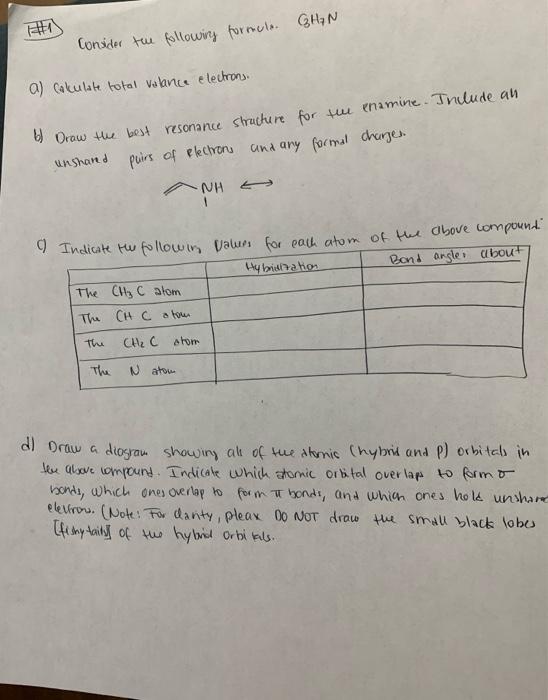 #1) Consider the following formula. C3H7N
a) Calculate total valance electrons.
b) Draw the best resonance structure for the enamine. Include all
unshared pairs of electrons and any formal charges.
NH ↔
c) Indicate the following Values for each atom of the above compound:
Hybridization Bond angles about
The CH3 C atom
The CH C atom
The CH2 C atom
The N atom
d) Draw a diagram showing all of the atomic (hybrid and P) orbitals in
the above compound. Indicate which atomic orbital overlaps to form σ
bonds, which ones overlap to form π bonds, and which ones hold unshare
electrons. (Note: For clarity, please DO NOT draw the small black lobes
[fishy tails] of the hybrid orbitals.